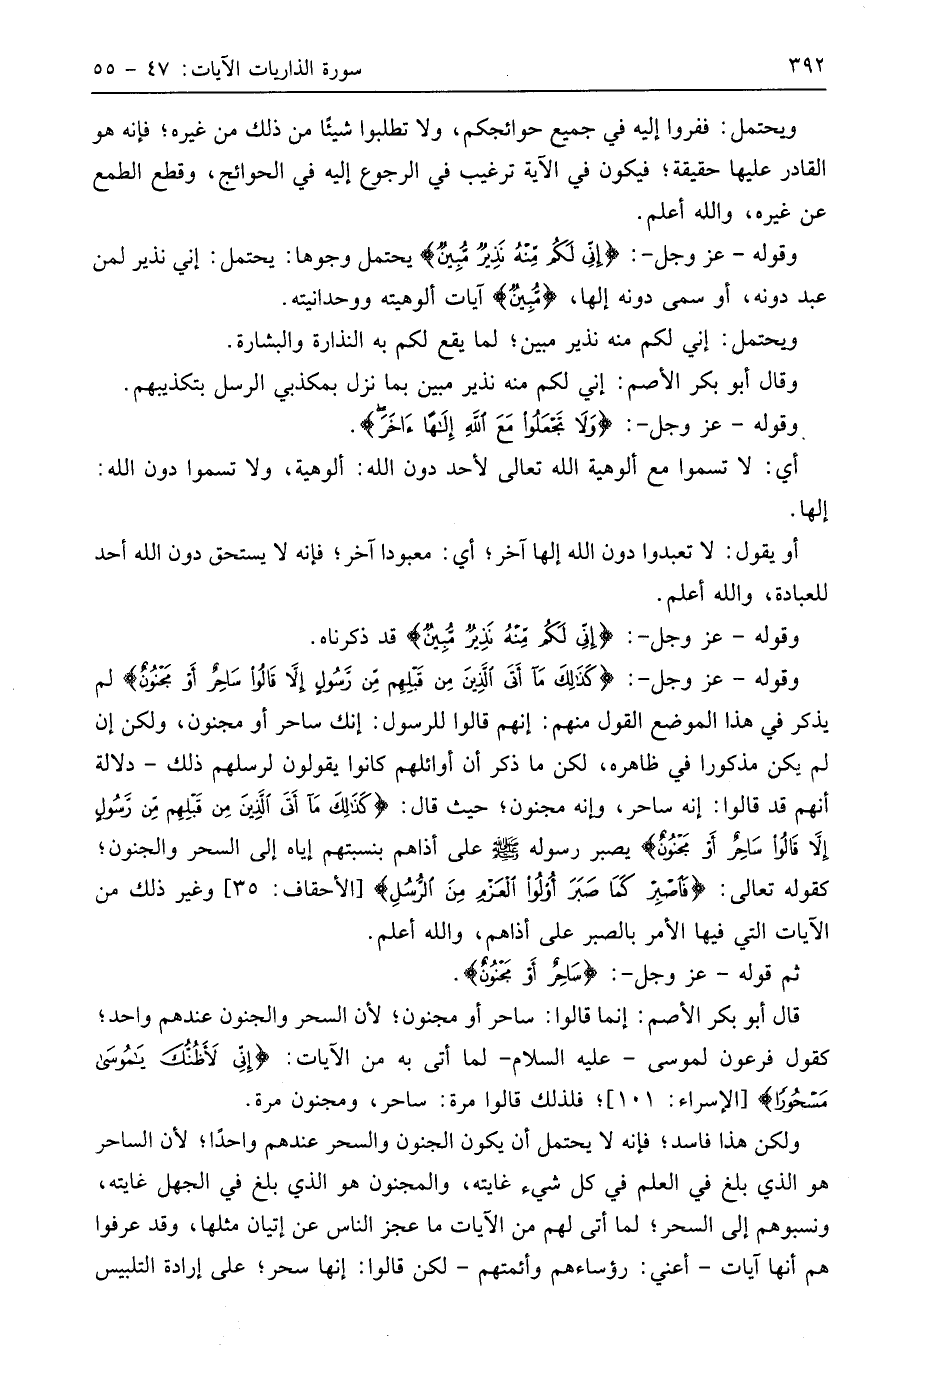 ٣٩٢
سورة الذاريات الآيات: ٤٧ - ٥٥
ويحتمل: ففروا إليه في جميع حوائجكم، ولا تطلبوا شيئًا من ذلك من غيره؛ فإنه هو
القادر عليها حقيقة؛ فيكون في الآية ترغيب في الرجوع إليه في الحوائج، وقطع الطمع
عن غيره، والله أعلم.
وقوله - عز وجل-: ﴿إِنِّي لَكُم مِّنْهُ نَذِيرٌ مُّبِينٌ﴾ يحتمل وجوها: يحتمل: إني نذير لمن
عبد دونه، أو سمى دونه إلها، ﴿مُّبِينٌ﴾ آيات ألوهيته ووحدانيته.
ويحتمل: إني لكم منه نذير مبين؛ لما يقع لكم به النذارة والبشارة.
وقال أبو بكر الأصم: إني لكم منه نذير مبين بما نزل بمكذبي الرسل بتكذيبهم.
وقوله - عز وجل-: ﴿وَلَا تَجْعَلُوا۟ مَعَ ٱللَّهِ إِلَٰهًا ءَاخَرَۖ﴾.
أي: لا تسموا مع ألوهية الله تعالى لأحد دون الله: ألوهية، ولا تسموا دون الله:
إلها.
أو يقول: لا تعبدوا دون الله إلها آخر؛ أي: معبودا آخر؛ فإنه لا يستحق دون الله أحد
للعبادة، والله أعلم.
وقوله - عز وجل-: ﴿إِنِّي لَكُم مِّنْهُ نَذِيرٌ مُّبِينٌ﴾ قد ذكرناه.
وقوله - عز وجل-: ﴿كَذَٰلِكَ مَآ أَتَى ٱلَّذِينَ مِن قَبْلِهِم مِّن رَّسُولٍ إِلَّا قَالُوا۟ سَاحِرٌ أَوْ مَجْنُونٌ﴾ لم
يذكر في هذا الموضع القول منهم: إنهم قالوا للرسول: إنك ساحر أو مجنون، ولكن إن
لم يكن مذكورا في ظاهره، لكن ما ذكر أن أوائلهم كانوا يقولون لرسلهم ذلك - دلالة
أنهم قد قالوا: إنه ساحر، وإنه مجنون؛ حيث قال: ﴿كَذَٰلِكَ مَآ أَتَى ٱلَّذِينَ مِن قَبْلِهِم مِّن رَّسُولٍ
إِلَّا قَالُوا۟ سَاحِرٌ أَوْ مَجْنُونٌ﴾ يصبر رسوله ﷺ على أذاهم بنسبتهم إياه إلى السحر والجنون؛
كقوله تعالى: ﴿فَٱصْبِرْ كَمَا صَبَرَ أُو۟لُوا۟ ٱلْعَزْمِ مِنَ ٱلرُّسُلِ﴾ [الأحقاف: ٣٥] وغير ذلك من
الآيات التي فيها الأمر بالصبر على أذاهم، والله أعلم.
ثم قوله - عز وجل-: ﴿سَاحِرٌ أَوْ مَجْنُونٌ﴾.
قال أبو بكر الأصم: إنما قالوا: ساحر أو مجنون؛ لأن السحر والجنون عندهم واحد؛
كقول فرعون لموسى - عليه السلام- لما أتى به من الآيات: ﴿إِنِّي لَأَظُنُّكَ يَٰمُوسَىٰ
مَسْحُورًا﴾ [الإسراء: ١٠١]؛ فلذلك قالوا مرة: ساحر، ومجنون مرة.
ولكن هذا فاسد؛ فإنه لا يحتمل أن يكون الجنون والسحر عندهم واحدًا؛ لأن الساحر
هو الذي بلغ في العلم في كل شيء غايته، والمجنون هو الذي بلغ في الجهل غايته،
ونسبوهم إلى السحر؛ لما أتى لهم من الآيات ما عجز الناس عن إتيان مثلها، وقد عرفوا
هم أنها آيات - أعني: رؤساءهم وأئمتهم - لكن قالوا: إنها سحر؛ على إرادة التلبيس